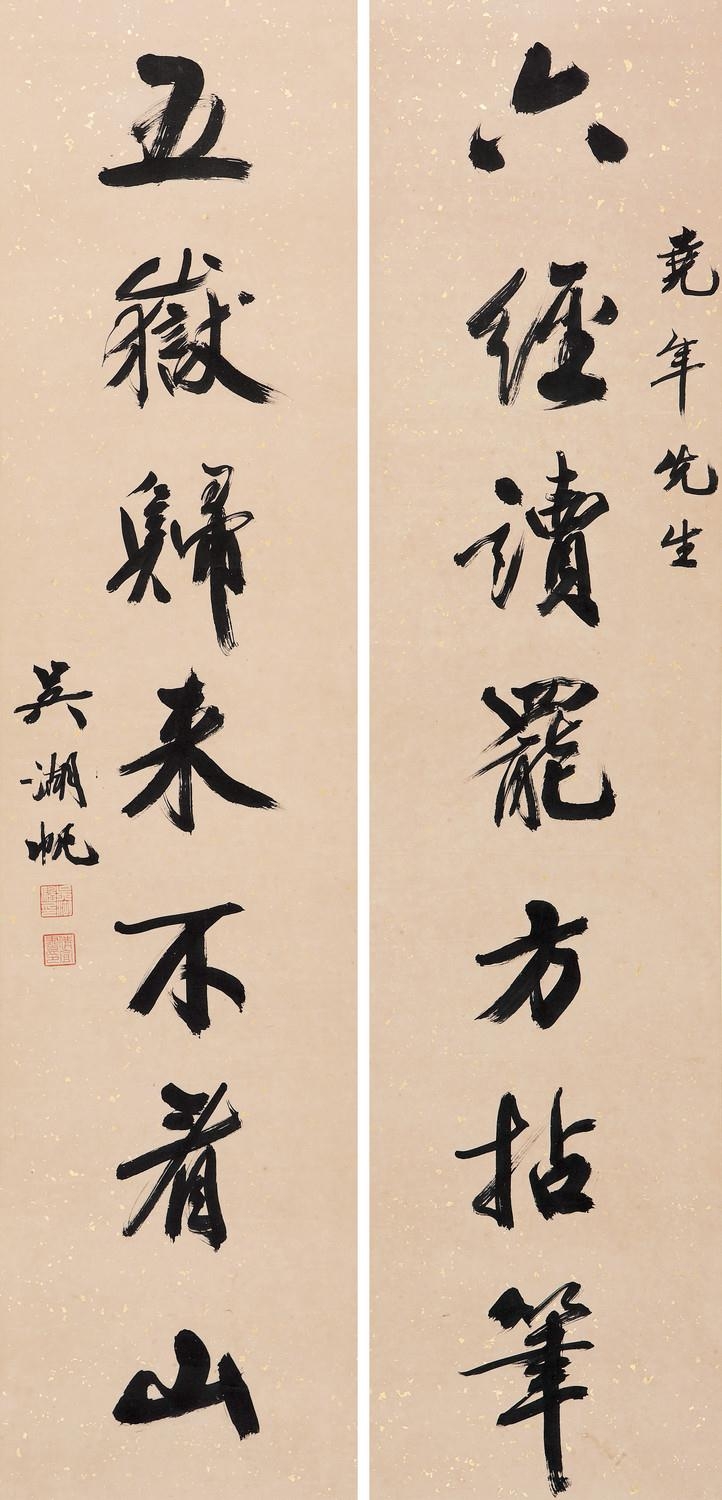 堯年先生
六經讀罷方拈筆
五嶽歸来不看山
吳湖帆